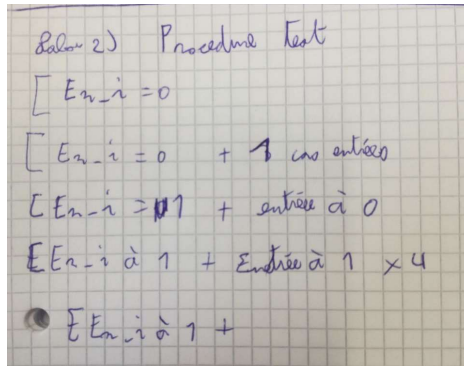 2) Procedure Test
[ En_i = 0
[ En_i = 0 + 1 entrées
[ En_i = 1 + entrée à 0
[ En_i à 1 + Entrée à 1 x4
[ En_i à 1 +